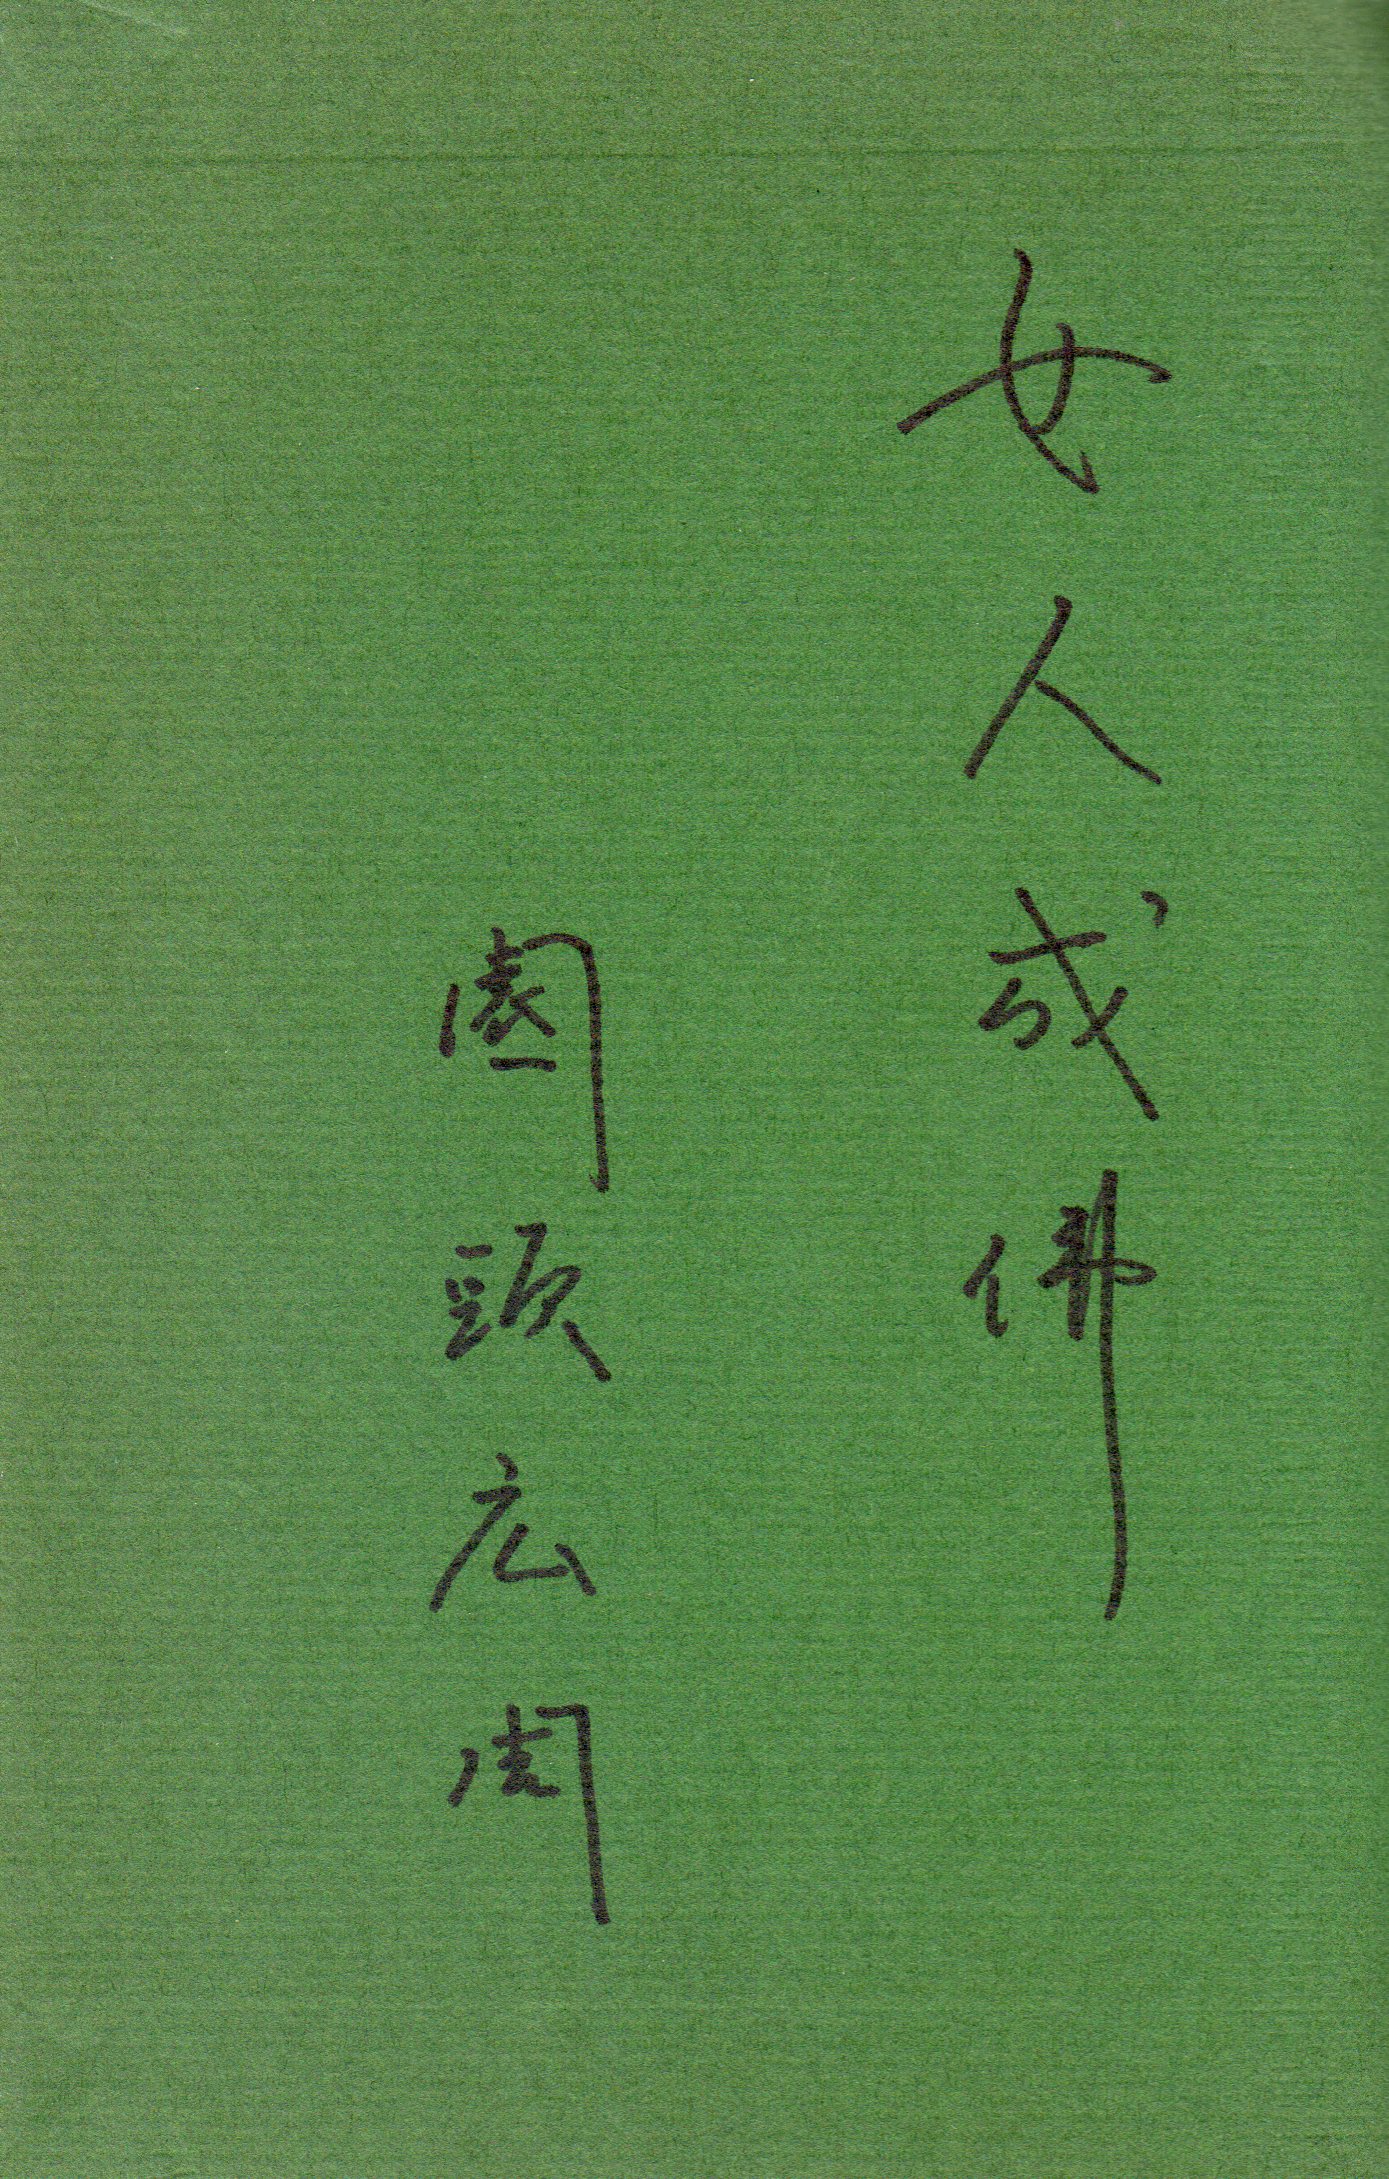 女人成佛
園頭広周